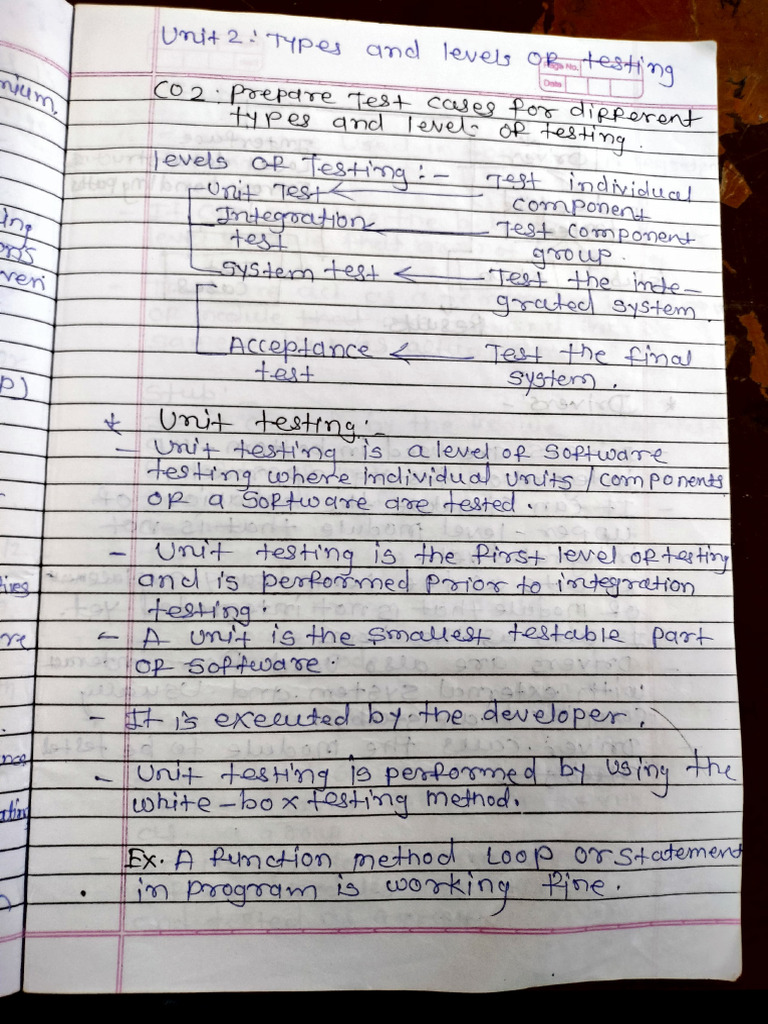 Unit 2: Types and levels of testing
Page No.
Date
CO2: Prepare Test cases for different
types and levels of testing.
levels of Testing :-
Unit Test ← Test individual component
Integration test ← Test component group.
System test ← Test the inte-
grated system.
Acceptance test ← Test the final system.
* Unit testing:
- Unit testing is a level of software
testing where individual units / components
of a software are tested.
- Unit testing is the first level of testing
and is performed prior to integration
testing.
- A unit is the smallest testable part
of software.
- It is executed by the developer.
- Unit testing is performed by using the
white-box testing method.
Ex. A function method loop or statement
in program is working fine.